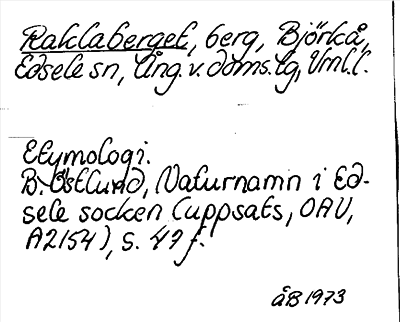 Raklaberget, berg, Björkå,
Edsele sn, Ång. v. doms.tg, Vnl.l.
Etymologi.
B. Östlund, Naturnamn i Ed-
sele socken (uppsats, OAU,
A2154), s. 49 f.
åB 1973